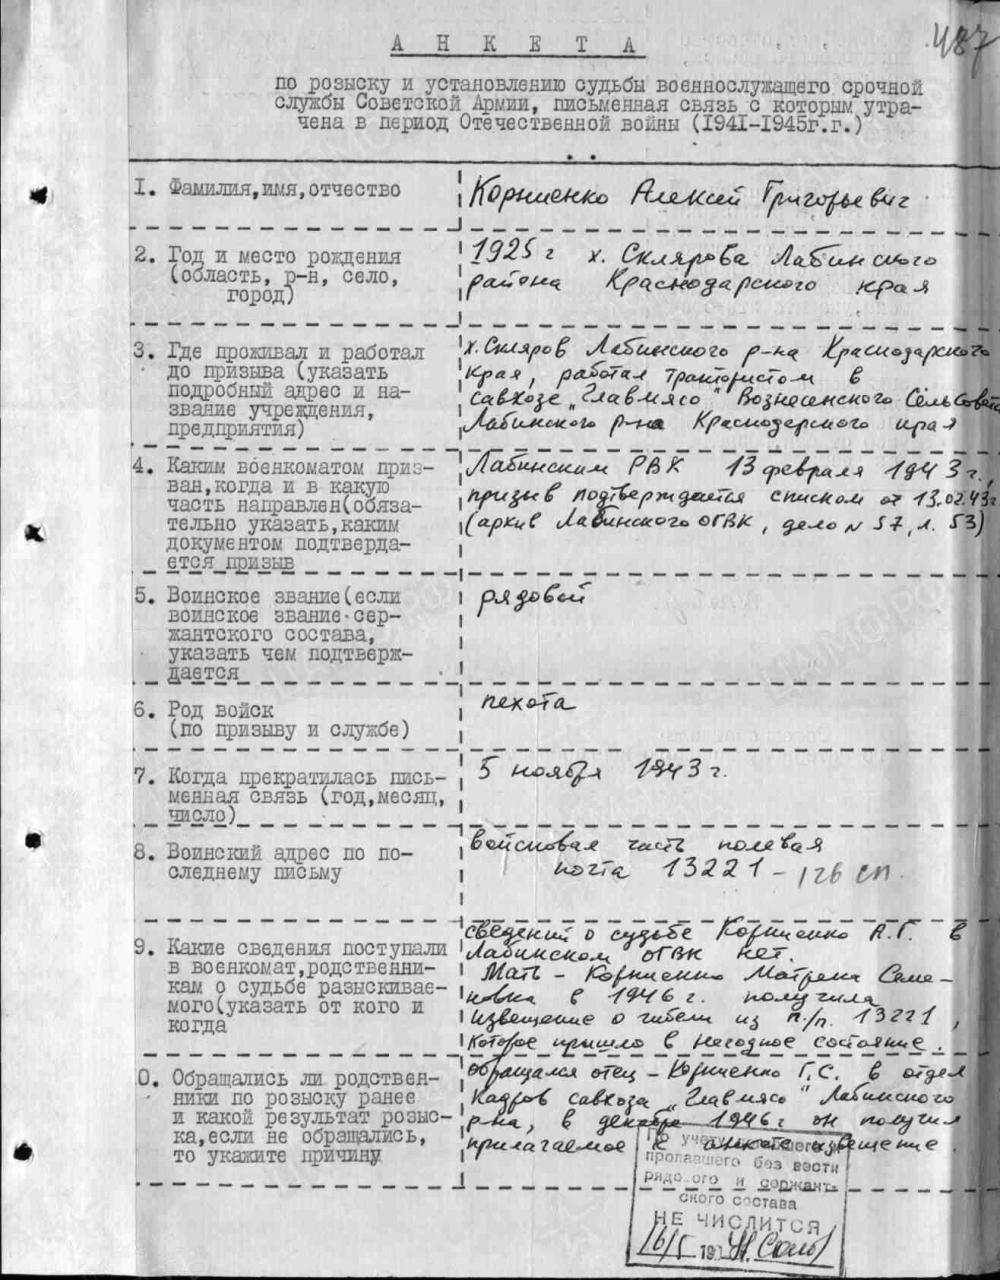 487
АНКЕТА
по розыску и установлению судьбы военнослужащего срочной
службы Советской Армии, письменная связь с которым утра-
чена в период Отечественной войны (1941-1945г.г.)
1. Фамилия,имя,отчество
Корниенко Алексей Григорьевич
2. Год и место рождения
(область, р-н, село,
город)
1925 г х. Склярова Лабинского
района Краснодарского края
3. Где проживал и работал
до призыва (указать
подробный адрес и на-
звание учреждения,
предприятия)
х.Скляров Лабинского р-на Краснодарского
края, работал трактористом в
савхозе „Главмясо" Вознесенского Сельсовета
Лабинского р-на Краснодарского края
4. Каким военкоматом приз-
ван,когда и в какую
часть направлен(обяза-
тельно указать,каким
документом подтверда-
ется призыв
Лабинским РВК 13 февраля 1943 г.,
призыв подтверждается списком от 13.02.43г
(архив Лабинского ОГВК, дело N 57, л. 53)
5. Воинское звание(если
воинское звание-сер-
жантского состава,
указать чем подтверж-
дается
рядовой
6. Род войск
(по призыву и службе)
пехота
7. Когда прекратилась пись-
менная связь (год,месяц,
число)
5 ноября 1943 г.
8. Воинский адрес по по-
следнему письму
войсковая часть полевая
почта 13221 - 126 сп
9. Какие сведения поступали
в военкомат,родственни-
кам о судьбе разыскивае-
мого(указать от кого и
когда
сведений о судьбе Корниенко А.Г. в
Лабинском ОГВК нет.
Мать - Корниенко Матрена Семе-
новна в 1946 г. получила
извещение о гибели из п./п. 13221,
которое пришло в негодное состояние.
0. Обращались ли родствен-
ники по розыску ранее
и какой результат розыс-
ка,если не обращались,
то укажите причину
обращался отец - Корниенко Г.С. в отдел
кадров савхоза „Главмясо" Лабинского
р-на, в декабре 1946 г он получил
прилагаемое к анкете извещение.
По учету
пропавшего без вести
рядового и сержант-
ского состава
НЕ ЧИСЛИТСЯ
16/5 19